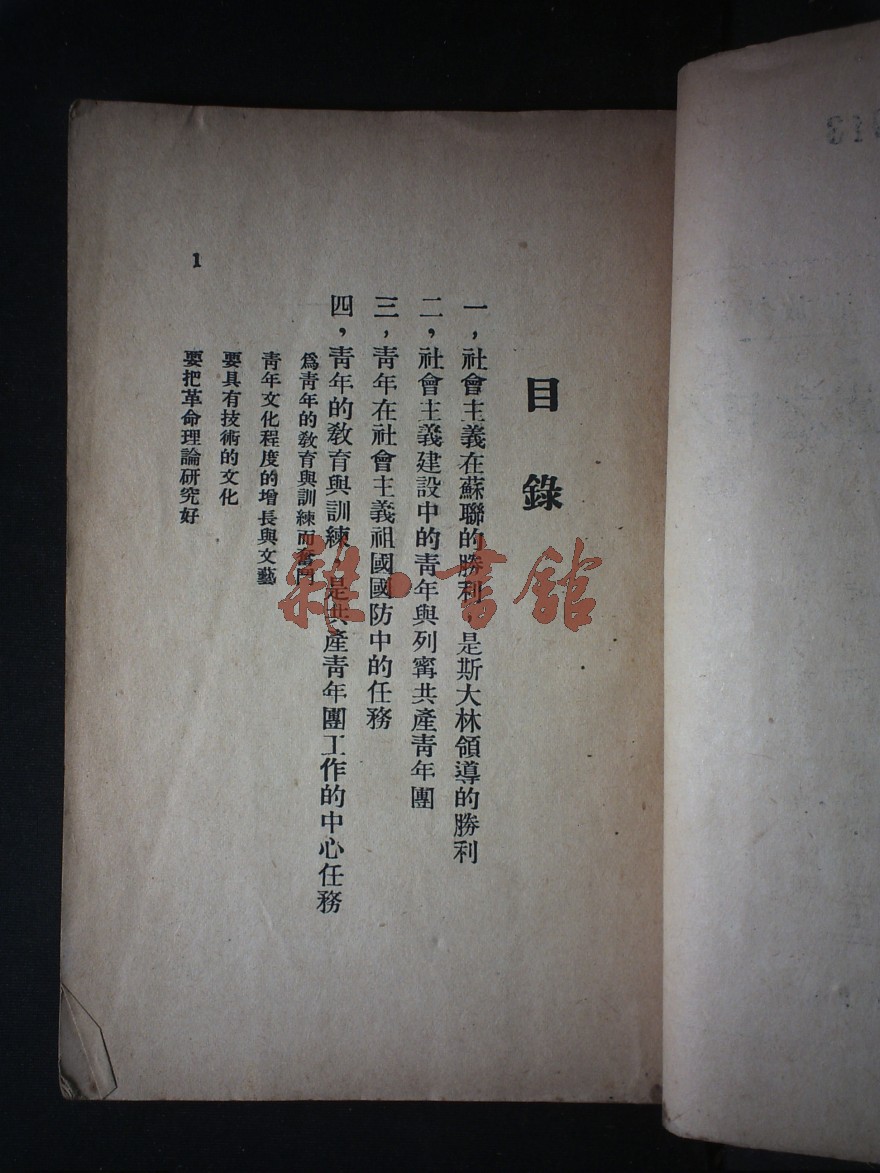 目錄
一，社會主義在蘇聯的勝利，是斯大林領導的勝利
二，社會主義建設中的青年與列甯共產青年團
三，青年在社會主義祖國國防中的任務
四，青年的敎育與訓練，是共產青年團工作的中心任務
爲青年的敎育與訓練而奮鬥
青年文化程度的增長與文藝
要具有技術的文化
要把革命理論研究好
1
雜·書館